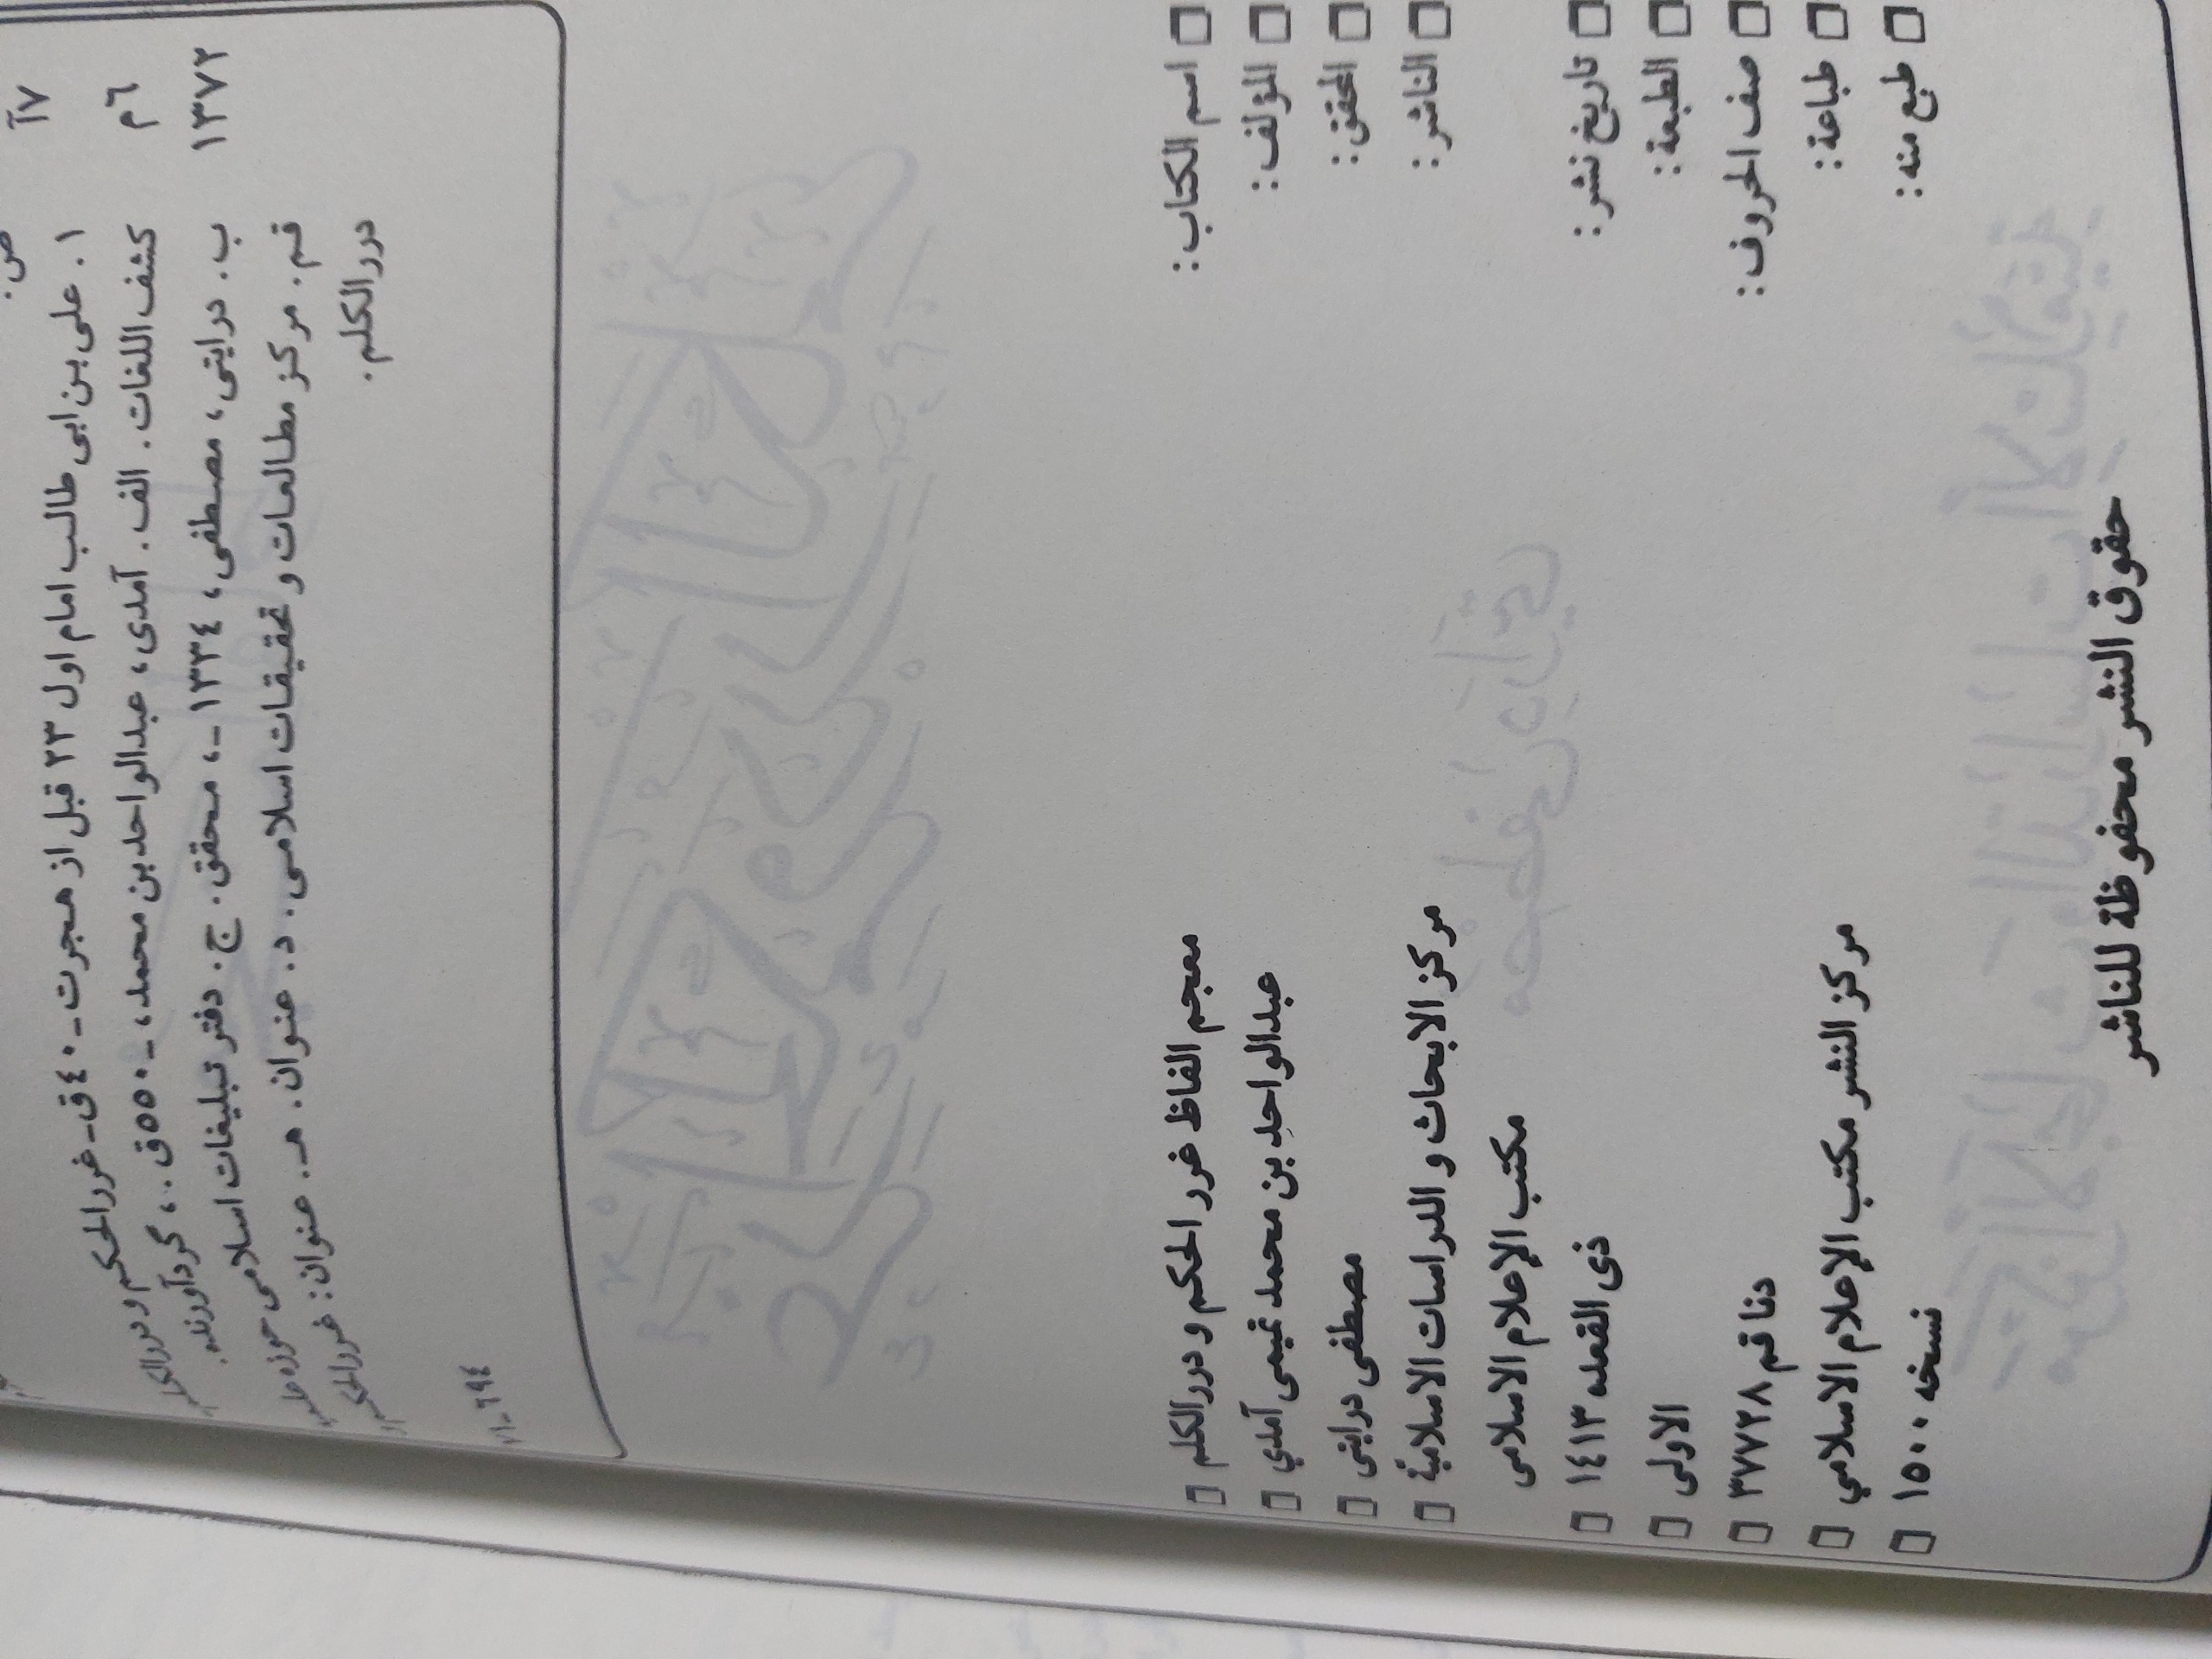 ص.
۱. علی بن ابی طالب امام اول ۲۳ قبل از هجرت ـ ٤٠ق ـ غررالحکم و دررالکلم ۷آ
کشف اللغات. الف. آمدی، عبدالواحدبن محمد، ـ ٥٥٠ق.، گردآورنده. ٦م
ب. درایتی، مصطفی، ۱۳۳٤ ـ، محقق. ج. دفتر تبلیغات اسلامی حوزه ۱۳۷۲
قم. مرکز مطالعات و تحقیقات اسلامی. د. عنوان. هـ. عنوان: غررالحکم
دررالکلم.
□ اسم الکتاب: معجم الفاظ غرر الحکم و درر الکلم □
□ المؤلف: عبدالواحِد بن محمد تمیمی آمدي □
□ المحقق: مصطفی درایتی □
□ الناشر: مرکز الابحاث و الدراسات الاسلامیّة □
مکتب الإعلام الاسلامی
□ تاریخ نشر: ذی القعده ۱٤۱۳ □
□ الطبعة: الاولی □
□ صف الحروف: دنا قم ۳۷۷۲۸ □
□ طباعة: مرکز النشر مکتب الإعلام الاسلامي □
□ طبع منه: ۱٥۰۰ نسخه □
حقوق النشر محفوظة للناشر